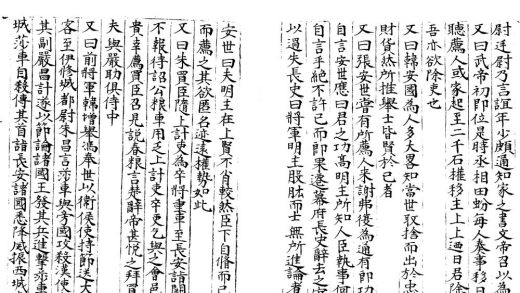 尉廷尉乃言誼年少頗通知家之書文帝召以為
又曰武帝初即位是時丞相田蚡每人奏事移日
聽薦人或家起至二千石權移主上上迺曰君除
吾亦欲除吏也
又曰韓安國為人多大畧知當世取捨而出於忠
財貨然所推舉士皆賢於己者
又曰張安世嘗有所薦人來謝弗復為通有郎功
自言安世應曰君之功高明主所知人臣執事何
自言乎絶不許已而郎果遷幕府長史辭去之官
以過失長史曰將軍明主股肱而士無所進論者
安世曰夫明主在上賢不肖較然臣下自脩而已
而薦之其欲匿名迹遠權勢如此
又曰朱買臣隨上計吏為卒將重車至長安詣闕
不報待詔公粮車用乏上計吏卒更乞與之會邑
貴幸薦買臣召見說春秋言楚辭帝甚悦之拜買
夫與嚴助俱侍中
又曰前將軍韓增舉馮奉世以衛候使持節送大
客至伊修城都尉朱昌言莎車與旁國攻殺漢使
其副嚴昌計遂以節諭諸國王發其兵進擊莎車
城莎車自殺傳其首詣長安諸國悉降威振西域